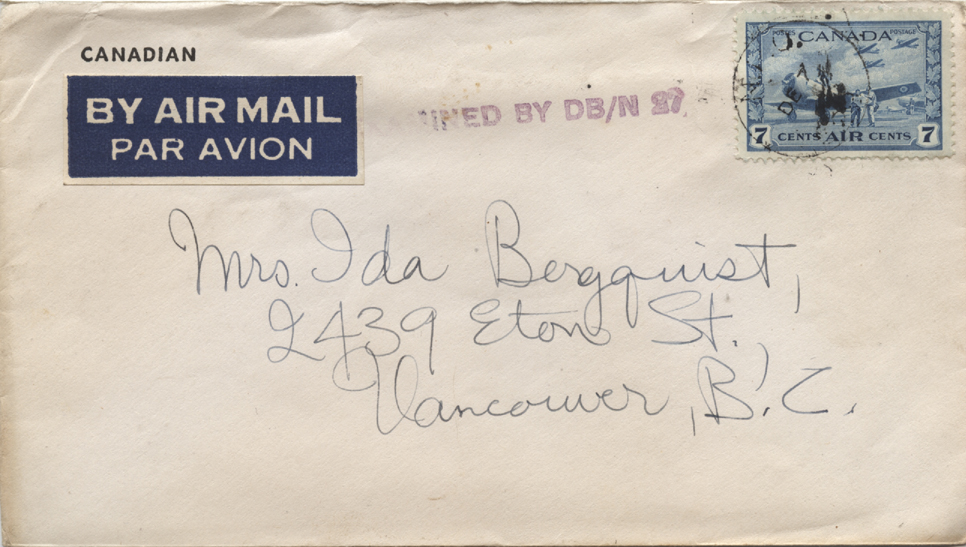 CANADIAN
BY AIR MAIL
PAR AVION
BY DB/N 27
POSTES CANADA POSTAGE
7 CENTS AIR CENTS 7
Mrs. Ida Bergquist,
2439 Eton St.,
Vancouver, B.C.